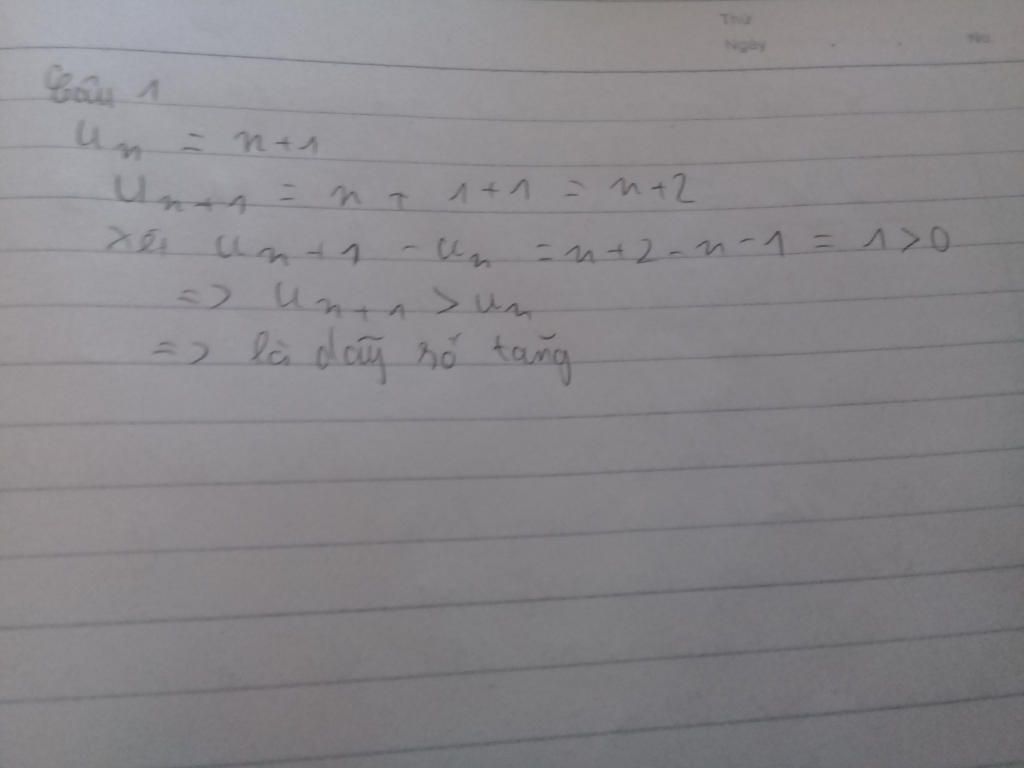 Thứ
Ngày . . No.
Câu 1
Un = n+1
Un+1 = n + 1+1 = n+2
Xét Un+1 - Un = n+2-n-1 = 1>0
=> Un+1 > Un
=> là dãy số tăng